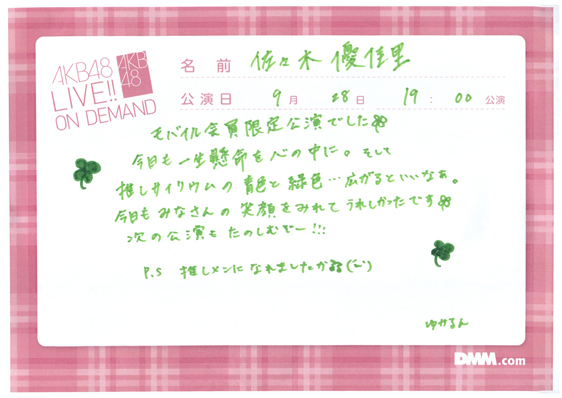 AKB48
LIVE!!
ON DEMAND
AKB
48
名前 佐々木優佳里
公演日 9月 28日 19:00 公演
モバイル会員限定公演でした
今日も一生懸命を心の中に。そして
推しサイリウムの 青色と緑色…広がるといいなぁ。
今日もみなさんの笑顔をみれてうれしかったです
次の公演もたのしむぞー!!!
P.S 推しメンになれましたか
ゆかるん
DMM.com